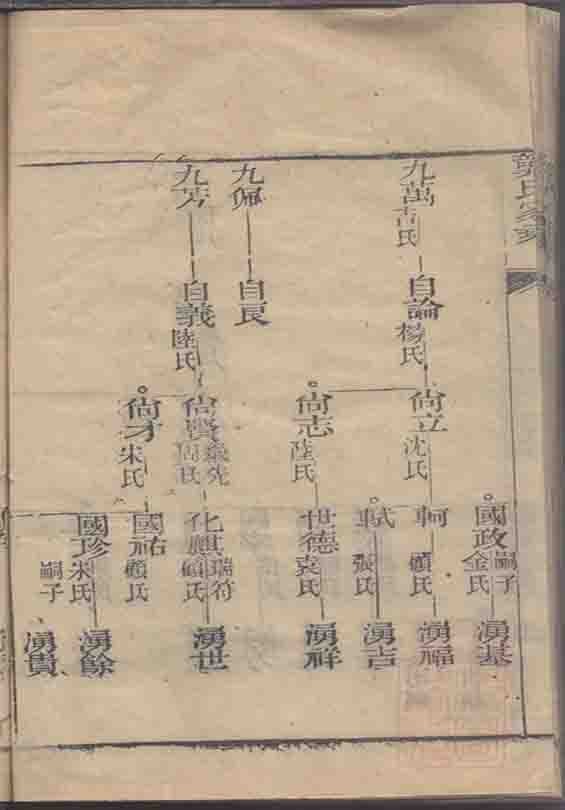 九萬 吉氏
九佩
九苪
自論 楊氏
自良
自義 陸氏
尙立 沈氏
尙志 陸氏
尙賢 周氏
尙才 朱氏
國政 嗣子 金氏
軻 顧氏
軾 張氏
世德 袁氏
化麒 瑞符 顧氏
國祐 顧氏
國珍 朱氏
嗣子
湧基
湧福
湧吉
湧祥
湧世
湧餘
湧貴